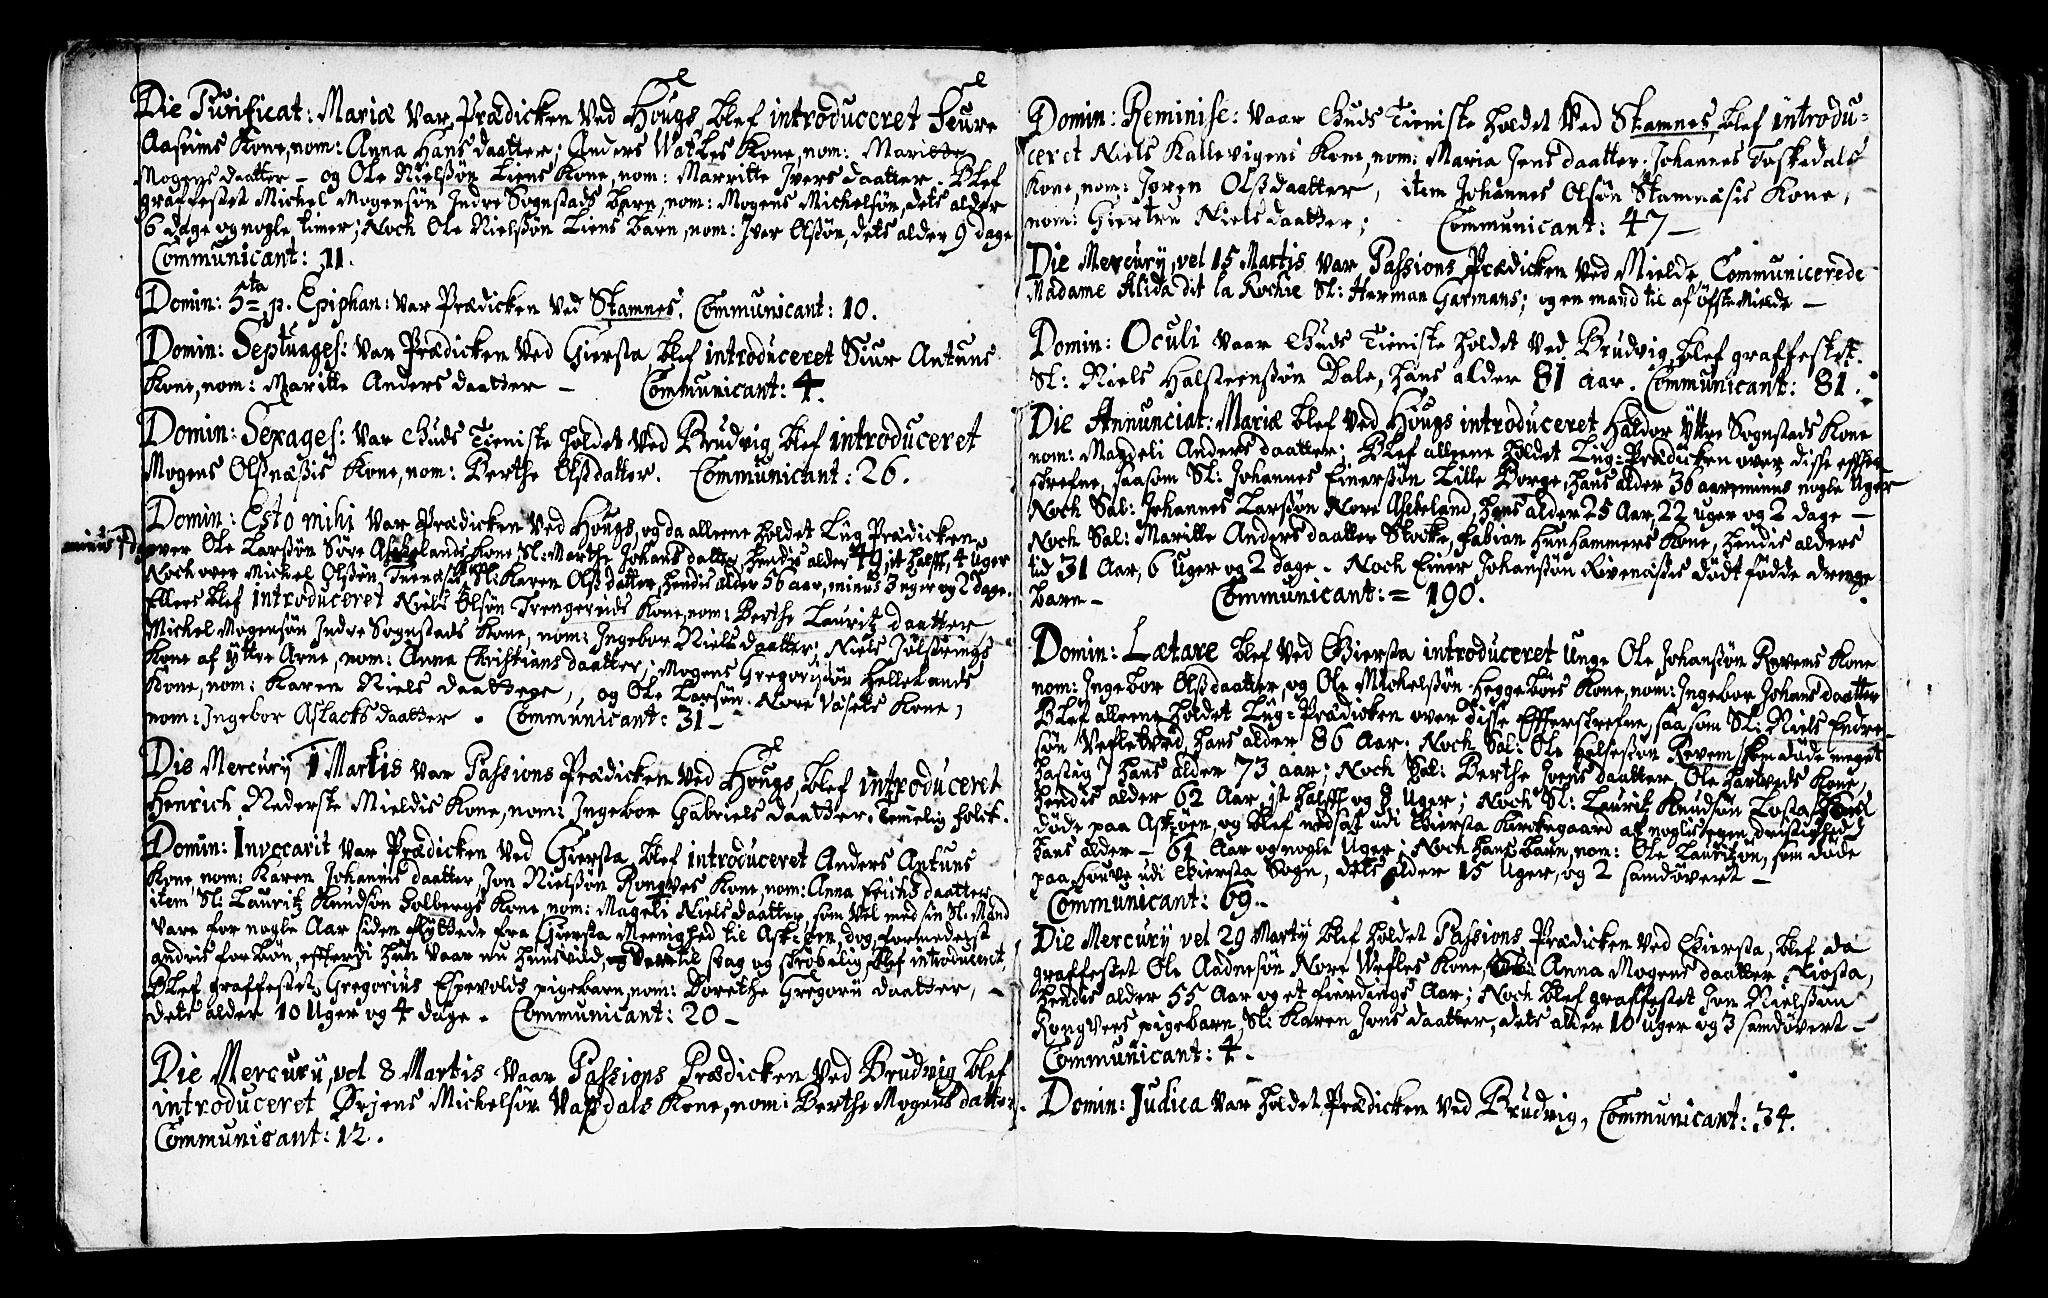 Die Purificat: Mariæ var Prædicken ved Hougs, blef introduceret Siurе
Aasums Kone, nom: Anna Hans daatter; Anders Watles Kone, nom: Maritte
Mogens daatter — og Ole Nielsøn Liens Kone, nom: Marritte Ivers daatter. Blef
graffestet Michel Mogensøn Indre Sognstads barn, nom: Mogens Michelsøn, dets alder
6 dage og nogle timer; Noch Ole Nielsøn Liens barn, nom: Iver Olsøn, dets alder 9 dage
Communicant: 11.
Domin: 5ta p. Epiphan: var Prædicken ved Stamnes. Communicant: 10.
Domin: Septuages: var Prædicken ved Giersta, blef introduceret Siur Antuns
Kone, nom: Maritte Anders daatter — Communicant: 4.
Domin: Sexages: var Guds Tieniste holdet ved Brudvig, blef introduceret
Mogens Olsnæsis Kone, nom: Berthe Olsdatter. Communicant: 26.
Domin: Esto mihi var Prædicken ved Hougs, og da allerne holdet Lug Prædicken
minus 1 dag
over Ole Larsøn Søre Askelands Kone Sl: Marthe Johans datter, hendis alder 49 it halff, 4 Uger
Noch over Michel Olsøn, Sl: Karen Olsdatter, hendis alder 56 aar, minus 3 uger og 2 dage.
Ellers blef introduceret Niels Olsøn Trengereids Kone, nom: Berthe Lauritz daatter
Michel Mogensøn Indre Sognstads Kone, nom: Ingebor Niels daatter; Niels
Kone af Yttre Arne, nom: Anna Christians daatter; Mogens Gregoriusøn Hellelands
Kone, nom: Karen Niels daattere, og Ole Larsøn Nore Väsets Kone,
nom: Ingebor Aslacks daatter. Communicant: 31 —
Die Mercury 1 Martis var Passions Prædicken ved Hougs, blef introduceret
Henrich Nederste Mieldis Kone, nom: Ingebor Gabriels daatter. Temelig folck.
Domin: Invocavit var Prædicken ved Giersta, blef introduceret Anders Antuns
Kone, nom: Karen Johannis daatter, Jon Nielsøn Rongves Kone, nom: Anna Erichs daatter
item Sl: Lauritz Knudsøn Holbergs Kone, nom: Mageli Niels daatter, som vel med sin Sl: Mand
vare for nogle Aar siden flyttede fra Giersta Meenighed til Ask-øen, dog formedelst
andris forbøn, efferdi hun vaar nu huusvild, til svag og skrøbelig, blef introduceret,
Blef graffestet Gregorius Espevolds pigebarn, nom: Dorethe Gregorii daatter,
dets alder 10 Uger og 4 dage. Communicant: 20 —
Die Mercury, vel 8 Martis vaar Passions Prædicken ved Brudvig, blef
introduceret Ørjens Michelsøn Vaxdals Kone, nom: Berthe Mogens datter.
Communicant: 12.
Domin: Reminisc: vaar Guds Tieniste holdet ved Stamnes, blef introdu-
ceret Niels Kallevigens Kone, nom: Maria Jens daatter. Johannes Toskedals
Kone, nom: Jøren Olsdaatter, item Johannes Olsøn Stamnæsis Kone,
nom: Giertru Niels daatter; Communicant: 47 —
Die Mercury, vel 15 Martis var Passions Prædicken ved Mielde, Communicerede
Madame Alida dit la Kochie Sl: Herman Garmans; og en mand til af Øfste Mielde —
Domin: Oculi vaar Guds Tieniste holdet ved Brudvig, blef graffestet.
Sl: Niels Halsteensøn Dale, hans alder 81 aar. Communicant: 81.
Die Annunciat: Mariæ blef ved Hougs introduceret Haldor Yttre Sognstads Kone
nom: Magdeli Anders daatter; Blef allerne holdet Lug-Prædicken over disse effter-
skrefne, saasom Sl: Johannes Einersøn Lille Borge, hans alder 36 aar minus nogle Uger
Noch Sal: Johannes Larsøn Nore Askeland, hans alder 25 Aar, 22 uger og 2 dage —
Noch Sal: Maritte Anders daatter Stocke, Fabian Hunhammers Kone, hendis alders
tid 31 Aar, 6 Uger og 2 dage. Noch Einer Johansøn Rivenæsis dødt fødde drenge
barn — Communicant: = 190.
Domin: Lætare blef ved Giersta introduceret Unge Ole Johansøn Revens Kone
nom: Ingebor Olsdaatter, og Ole Michelsøn Heggebøes Kone, nom: Ingebor Johans daatter
Blef allerne holdet Lug-Prædicken over disse Effterskrefne, saasom Sl: Niels Endre-
søn Vefletved, hans alder 86 Aar. Noch Sal: Ole Helgesøn Revem (som døde meget
hastig) hans alder 73 aar; Noch Sal: Berthe Ivers daatter, Ole Hartveds Kone,
hendis alder 62 Aar, it halff og 8 Uger; Noch Sl: Lauritz Knudsøn Tosta, som
døde paa Askøen, og blef nedsat udi Giersta Kirckegaard af noglis egen dristighed)
hans alder — 61 Aar og nogle Uger; Noch hans barn, nom: Ole Lauritzøn, som døde
paa Houve udi Giersta Sogn, dets alder 15 Uger, og 2 samdøvert —
Communicant: 69.
Die Mercury vel 29 Martij blef holdet Passions Prædicken ved Giersta, blef da
graffestet Ole Aadnesøn Nore Wefles Kone, Anna Mogens daatter Tiosta,
hendis alder 55 Aar og et fierdings Aar; Noch blef graffestet Jon Nielsøn
Rongvers pigebarn, Sl: Karen Jons daatter, dets alder 10 uger og 3 samdøvert —
Communicant: 4.
Domin: Judica var holdet Prædicken ved Brudvig, Communicant: 34.